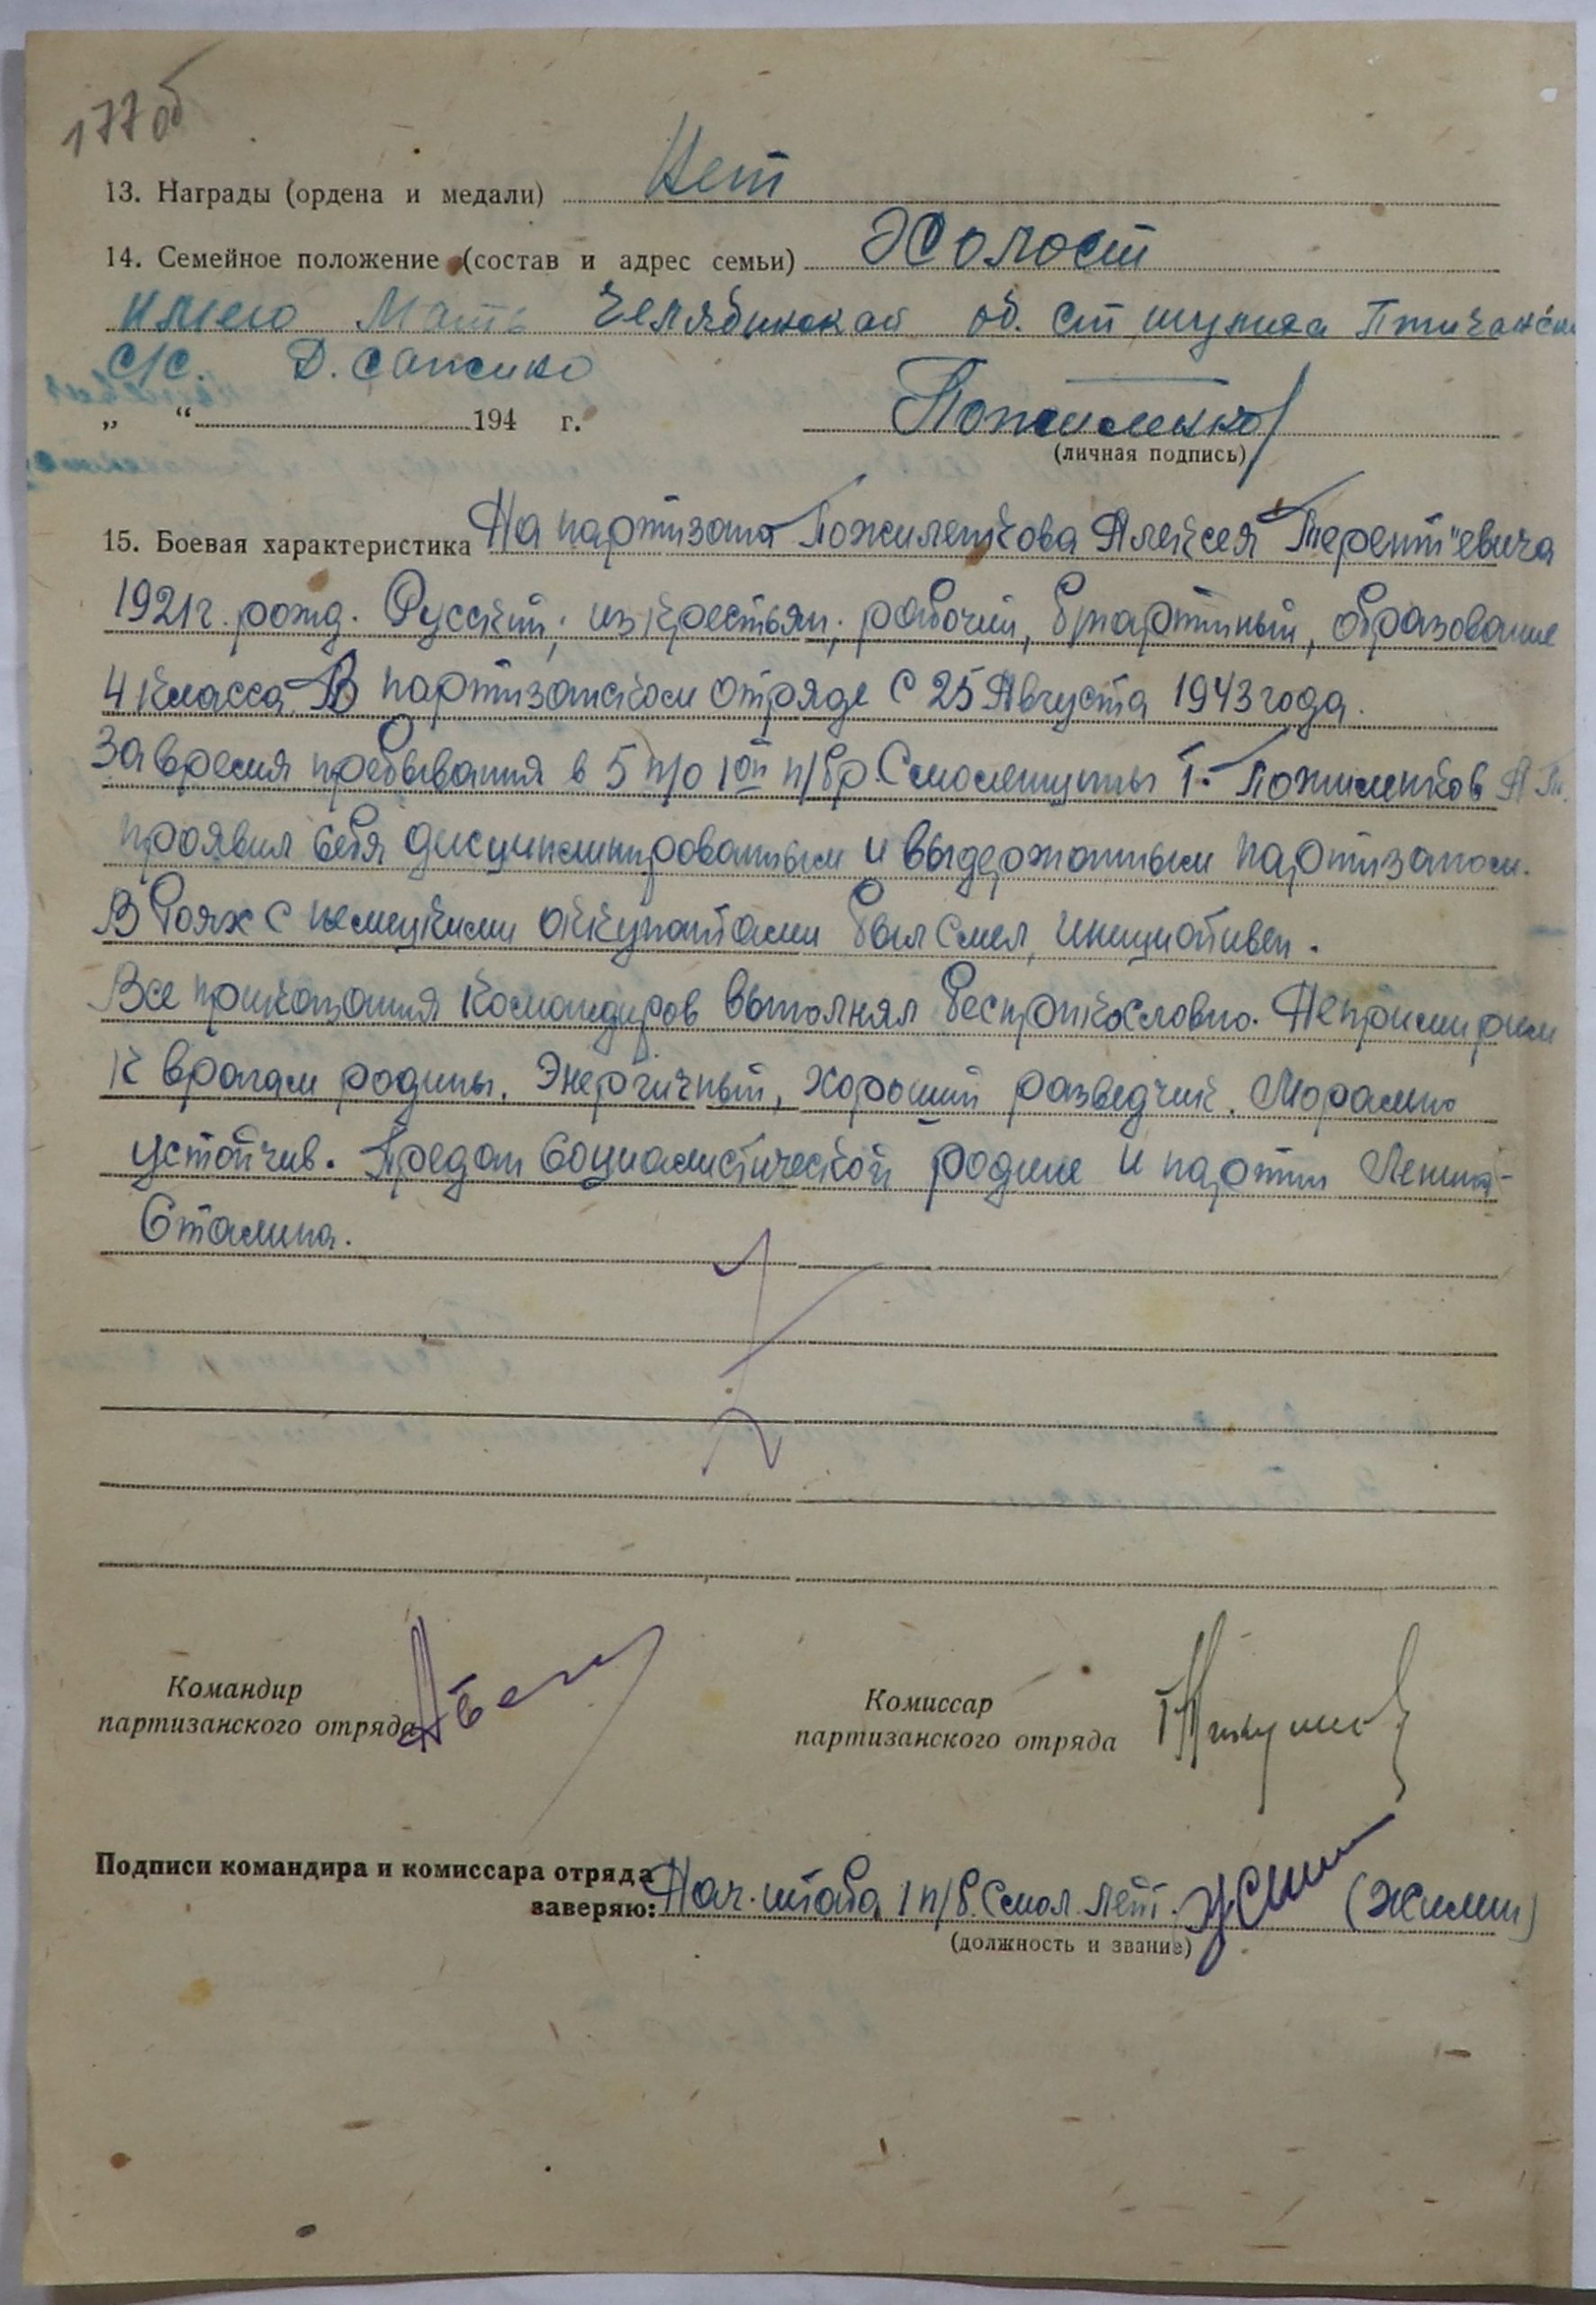 177об
13. Награды (ордена и медали) Нет
14. Семейное положение (состав и адрес семьи) Холост
имею Мать Челябинская об. ст шумиха Птичанск
С/С. Д. Сажино
„ “ 194 г. Пожиленков
(личная подпись)
15. Боевая характеристика На партизана Пожиленкова Алексея Терентъевича
1921 г. рожд. Русский; из крестьян; рабочий, б/партийный, образование
4 класса. В партизанском отряде с 25 Августа 1943 года.
За время пребывания в 5 п/о 1ой п/бр. Смоленщины т. Пожиленков А.Т.
проявил себя дисциплинированным и выдержанным партизаном.
В боях с немецкими оккупантами был смел, инициативен.
Все приказания командиров выполнял беспрекословно. Непримирим
к врагам родины. Энергичный, хороший разведчик. Морально
устойчив. Предан социалистической родине и партии Ленина-
Сталина.
Командир
партизанского отряда
Комиссар
партизанского отряда
Подписи командира и комиссара отряда
заверяю: Нач. штаба 1 п/б. Смол. лейт. (Жилин)
(должность и звание)